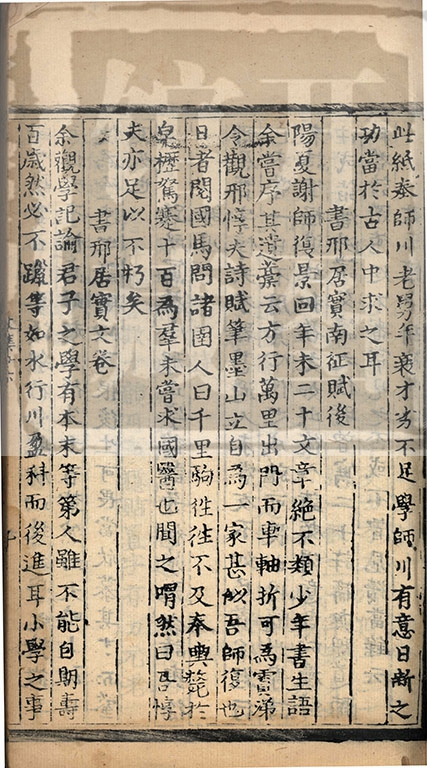 此紙奉師川老舅年衰才劣不足學師川有意日新之
功當於古人中求之耳
書邢居實南征賦後
陽夏謝師復景回年未二十文章絶不類少年書生語
余嘗序其遺藁云方行萬里出門而車軸折可為霣涕
今觀邢惇夫詩賦筆墨山立自為一家甚似吾師復也
日者閱國馬問諸圉人曰千里駒徃徃不及奉輿斃於
皁櫪駑蹇十百為羣未嘗求國醫也聞之喟然曰吾惇
夫亦足以不朽矣
書邢居實文卷
余觀學記論君子之學有本末等第人雖不能自期壽
百歲然必不躐等如水行川盈科而後進耳小學之事